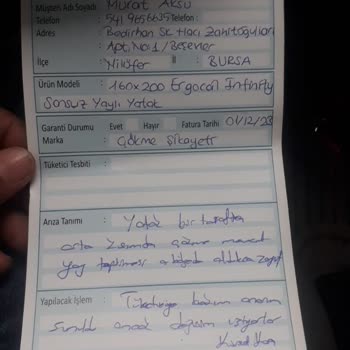 Müşteri Adı Soyadı : Murat Aksu
Telefon : 541 9656635 Telefon
Adres : Bedirhan Sk. Hacı Zahitoğulları
Apt. No:1 / Beşevler
İlçe : Nilüfer İl : BURSA
Ürün Modeli : 160x200 Ergocol Infinity
Sonsuz Yaylı Yatak
Garanti Durumu Evet Hayır Fatura Tarihi 01/12/23
Marka : Çökme Şikayeti
Tüketici Tesbiti :
Arıza Tanımı : Yatak bir taraftan
orta kısımda çökme mevcut
yay
Yapılacak İşlem : Tüketiciye bakım onarım
sunuldu ancak değişim istiyorlar